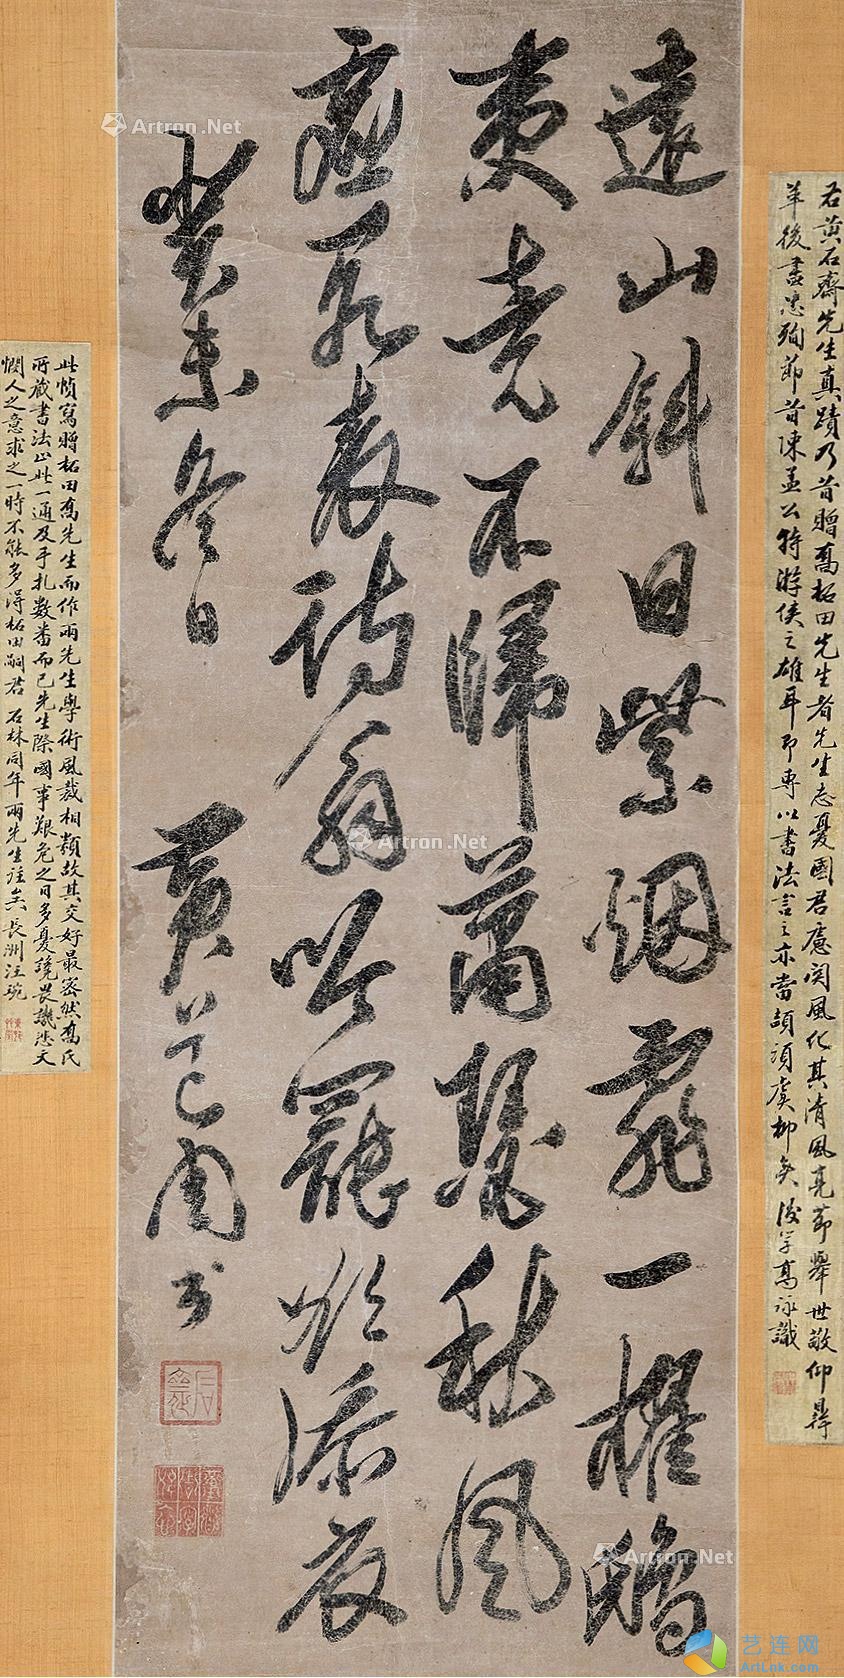 右黄石齋先生真蹟乃昔贈喬柘田先生者先生志憂國君慮関風化其清風亮節舉世敬仰尋
年後盡忠殉節昔陳孟公特游俠之雄耳即專以書法言之亦當頡頏虞柳矣後学高詠識
遠山斜日紫烟飛一櫂鴟
夷竟不歸蕭瑟秋風
楚詩翁罷添衣
癸未冬日 黄道周書
此幀寫贈柘田喬先生而作兩先生學術風裁相類故其交好最密然喬氏
所藏書法止此一通及手札數番而已先生際國事艱危之日多憂讒畏譏悲天
憫人之意求之一時不能多得柘田嗣君石林同年兩先生 長洲汪琬
Artron.Net
Artron.Net
Artron.Net
艺连网
ArtLnk.com